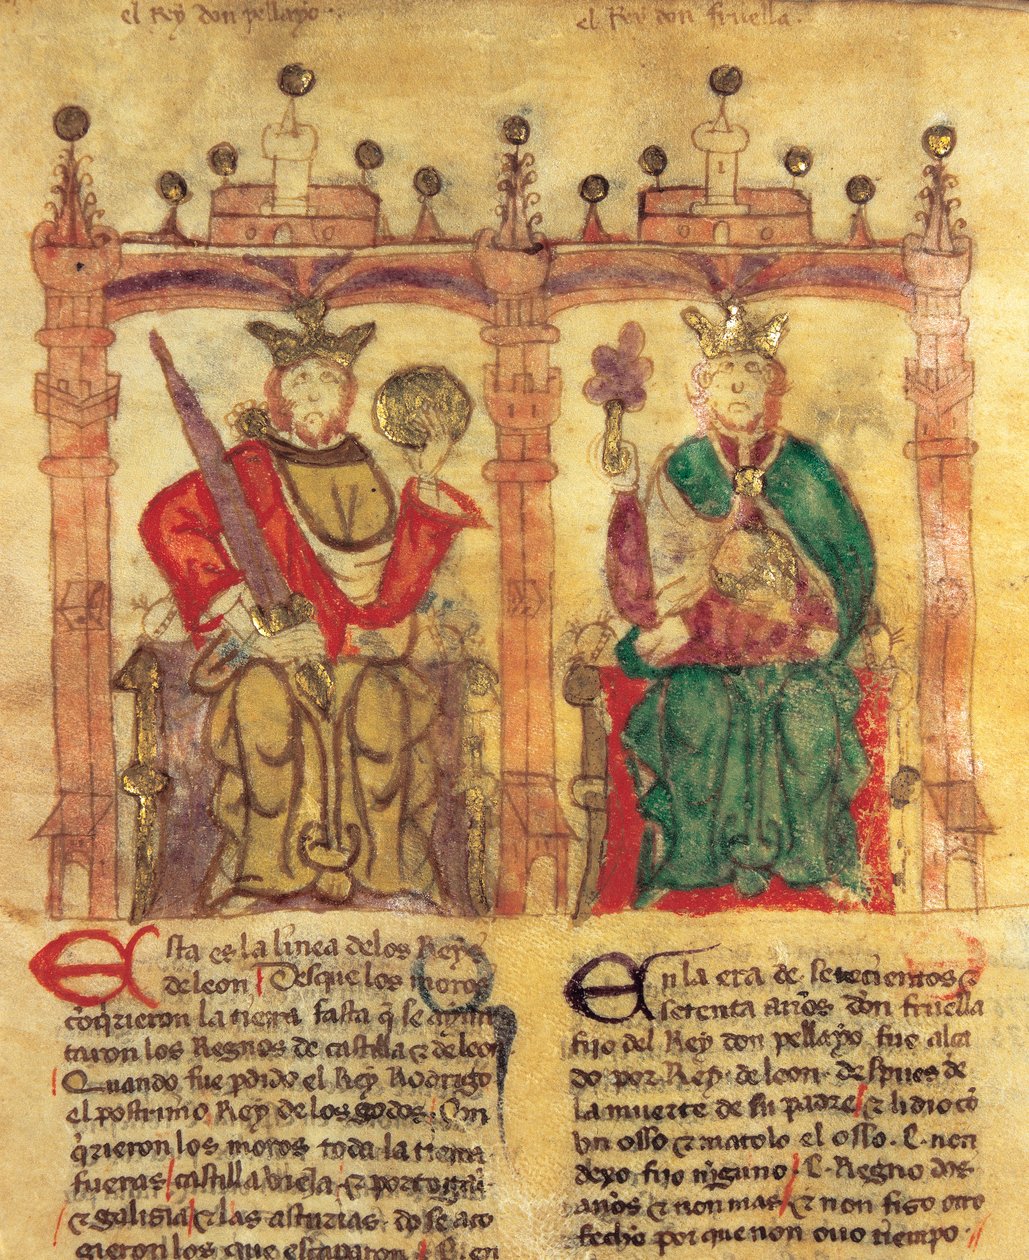 el Rey don pellayo
el Rey don fruella
Esta es la linea de los Reyes
de leon Desque los moros
cõqrieron la tierra fasta q̃ se ayun
taron los Regnos de castilla & de leon
Quando fue pdido el Rey Rodrigo
el postrimo Rey de los godos. Con
q̃rieron los moros toda la tierra
fueras castilla vieia & portogal
& galisia & las asturias. do se aco
gieron los que escaparon
En la era de. setecientos &
setenta años don fruella
fijo del Rey don pellayo fue alca
do por Rey de leon. despues de
la muerte de su padre & lidio cõ
vn osso & matolo el osso. E. non
dexo fijo nĩguno. E. Regno dos
años & non mas & non fiso otro
fecho por que non ovo tiempo.